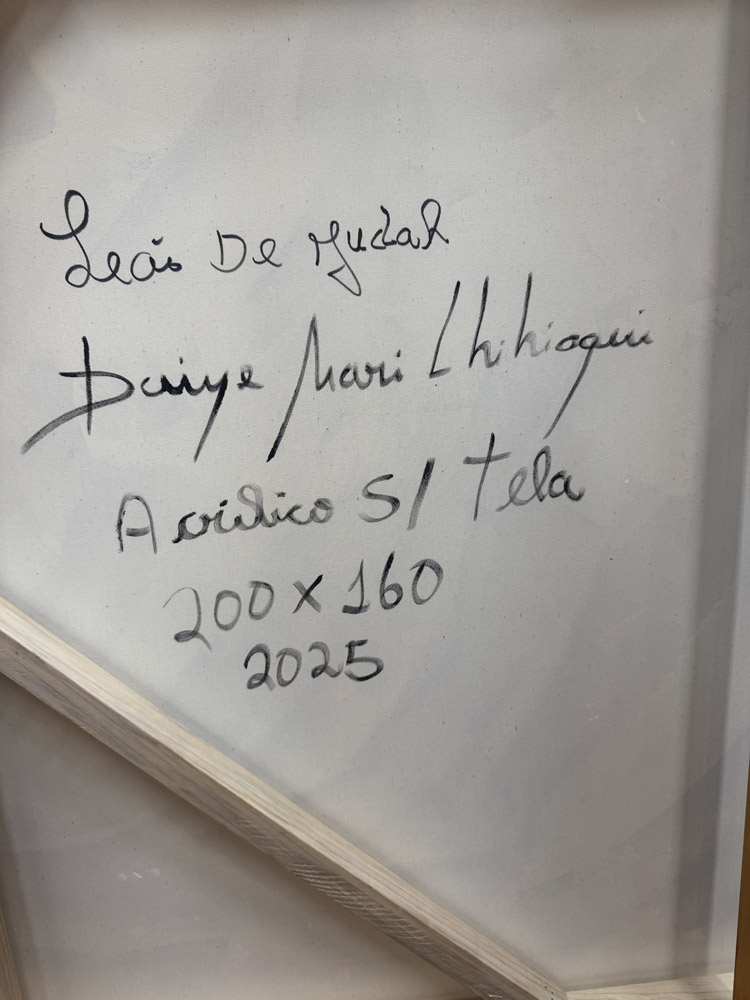 Leão De Judah
Daiye Mari Chihiaqui
Acrílico S/ Tela
200 x 160
2025